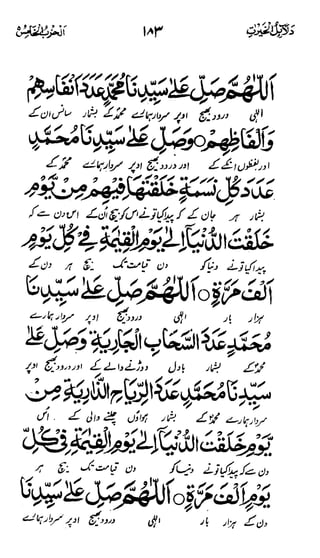 دلائل الخیرات ۱۸۳ الحزب الخامس
اَللّٰهُمَّ صَلِّ عَلٰى سَيِّدِنَا مُحَمَّدٍ عَدَدَ اَنْفَاسِهِمْ
الٰہی درود بھیج اوپر سردار ہمارے محمدؐ کے بشمار سانس ان کے
وَاَلْفَاظِهِمْ ○ وَصَلِّ عَلٰى سَيِّدِنَا مُحَمَّدٍ
اور لفظوں انکے کے اور درود بھیج اوپر سردار ہمارے محمدؐ کے
عَدَدَ كُلِّ نَسَمَةٍ خَلَقْتَهَا فِيْهِمْ مِنْ يَّوْمِ
بشمار ہر جان کے کہ پیدا کیا تونے اس کو بیچ اُن کے اس دن سے کہ
خَلَقْتَ الدُّنْيَآ اِلٰى يَوْمِ الْقِيٰمَةِ فِيْ كُلِّ يَوْمٍ
پیدا کیا تونے دنیا کو دن قیامت تک بیچ ہر دن کے
اَلْفَ مَرَّةٍ ○ اَللّٰهُمَّ صَلِّ عَلٰى سَيِّدِنَا
ہزار بار الٰہی درود بھیج اوپر سردار ہمارے
مُحَمَّدٍ عَدَدَ السَّحَابِ الْجَارِيَةِ وَصَلِّ عَلٰى
محمدؐ کے بشمار بادل دوڑنے والے کے اور درود بھیج اوپر
سَيِّدِنَا مُحَمَّدٍ عَدَدَ الرِّيَاحِ الذَّارِيَةِ مِنْ
سردار ہمارے محمدؐ کے بشمار ہواؤں چلنے والی کے اُس
يَّوْمِ خَلَقْتَ الدُّنْيَآ اِلٰى يَوْمِ الْقِيٰمَةِ فِيْ كُلِّ
دن سے کہ پیدا کیا تونے دنیا کو دن قیامت تک بیچ ہر
يَوْمٍ اَلْفَ مَرَّةٍ ○ اَللّٰهُمَّ صَلِّ عَلٰى سَيِّدِنَا
دن کے ہزار بار الٰہی درود بھیج اوپر سردار ہمارے